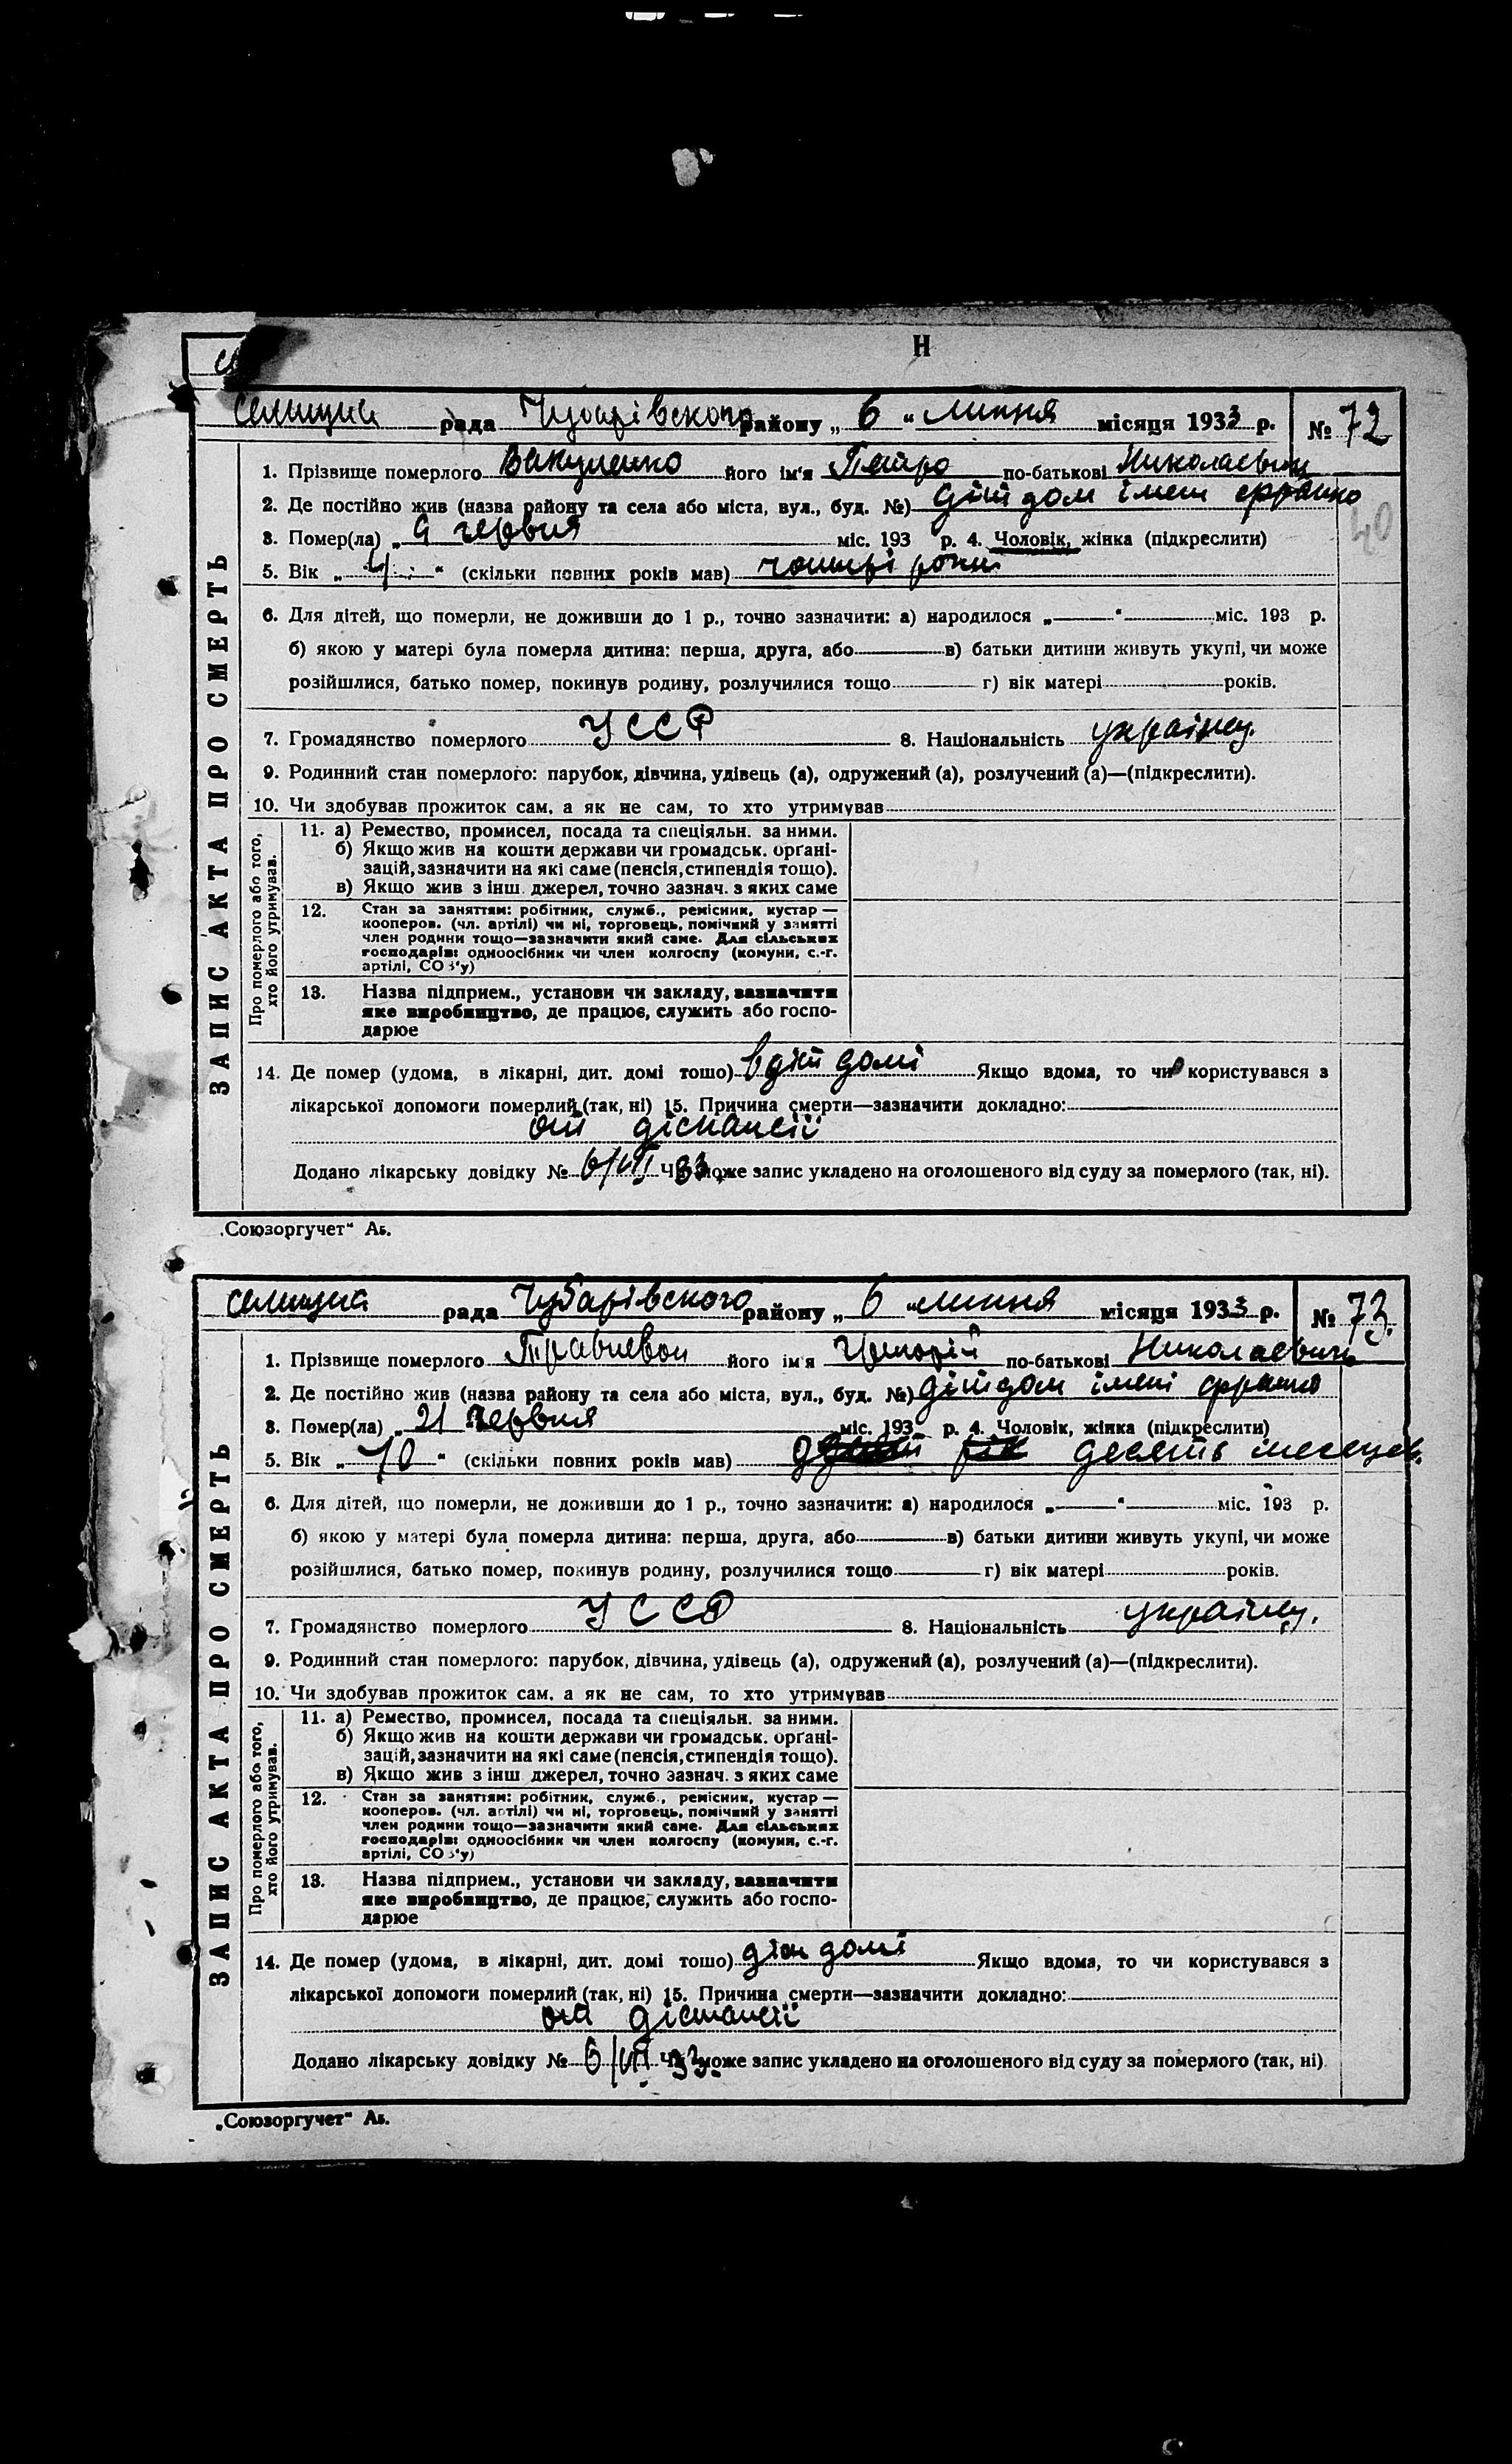 Н
селищна рада Чубарівского району „ 6 “ липня місяця 1933 р. № 72
1. Прізвище померлого Вакуленко його ім'я Петро по-батькові Николаевич
40
2. Де постійно жив (назва району та села або міста, вул., буд. №) дітдом імені франко
3. Помер(ла) „ 9 червня міс. 193 р. 4. Чоловік, жінка (підкреслити)
5. Вік „ 4 “ (скільки повних років мав) чотирі роки
6. Для дітей, що померли, не доживши до 1 р., точно зазначити: а) народилося „—“—міс. 193 р.
б) якою у матері була померла дитина: перша, друга, або—в) батьки дитини живуть укупі, чи може
розійшлися, батько помер, покинув родину, розлучилися тощо г) вік матері років.
7. Громадянство померлого УССР 8. Національність україну.
9. Родинний стан померлого: парубок, дівчина, удівець (а), одружений (а), розлучений (а)—(підкреслити).
10. Чи здобував прожиток сам, а як не сам, то хто утримував
ЗАПИС АКТА ПРО СМЕРТЬ
Про померлого або того,
хто його утримував.
11. а) Ремество, промисел, посада та спеціяльн. за ними.
б) Якщо жив на кошти держави чи громадськ. орґані-
зацій, зазначити на які саме (пенсія, стипендія тощо).
в) Якщо жив з інш. джерел, точно зазнач. з яких саме
12. Стан за заняттям: робітник, служб., ремісник, кустар—
кооперов. (чл. артілі) чи ні, торговець, помічний у занятті
член родини тощо—зазначити який саме. Для сільських
господарів: одноосібник чи член колгоспу (комуни, с.-г.
артілі, СОЗ'у)
13. Назва підприєм., установи чи закладу, зазначити
яке виробництво, де працює, служить або госпо-
дарює
14. Де помер (удома, в лікарні, дит. домі тошо) в діт домі Якщо вдома, то чи користувався з
лікарської допомоги померлий (так, ні) 15. Причина смерти—зазначити докладно:
от діспансії
Додано лікарську довідку № 6/VII 33. Чи може запис укладено на оголошеного від суду за померлого (так, ні).
„Союзоргучет“ Аб.
селищна рада Чубарівского району „ 6 “ липня місяця 1933 р. № 73.
1. Прізвище померлого його ім'я Григорій по-батькові Николаевич
2. Де постійно жив (назва району та села або міста, вул., буд. №) дітдом імені франко
3. Помер(ла) „ 21 червня міс. 193 р. 4. Чоловік, жінка (підкреслити)
5. Вік „ 10 “ (скільки повних років мав) рік десять месецев.
6. Для дітей, що померли, не доживши до 1 р., точно зазначити: а) народилося „—“—міс. 193 р.
б) якою у матері була померла дитина: перша, друга, або—в) батьки дитини живуть укупі, чи може
розійшлися, батько помер, покинув родину, розлучилися тощо—г) вік матері років.
7. Громадянство померлого УССР 8. Національність україну.
9. Родинний стан померлого: парубок, дівчина, удівець (а), одружений (а), розлучений (а)—(підкреслити).
10. Чи здобував прожиток сам, а як не сам, то хто утримував
ЗАПИС АКТА ПРО СМЕРТЬ
Про померлого або того,
хто його утримував.
11. а) Ремество, промисел, посада та спеціяльн. за ними.
б) Якщо жив на кошти держави чи громадськ. орґані-
зацій, зазначити на які саме (пенсія, стипендія тощо).
в) Якщо жив з інш джерел, точно зазнач. з яких саме
12. Стан за заняттям: робітник, служб., ремісник, кустар—
кооперов. (чл. артілі) чи ні, торговець, помічний у занятті
член родини тощо—зазначити який саме. Для сільських
господарів: одноосібник чи член колгоспу (комуни, с.-г.
артілі, СОЗ'у)
13. Назва підприєм., установи чи закладу, зазначити
яке виробництво, де працює, служить або госпо-
дарює
14. Де помер (удома, в лікарні, дит. домі тошо) діт домі Якщо вдома, то чи користувався з
лікарської допомоги померлий (так, ні) 15. Причина смерти—зазначити докладно:
от діспансії
Додано лікарську довідку № 6/VII 33. Чи може запис укладено на оголошеного від суду за померлого (так, ні).
„Союзоргучет“ Аб.